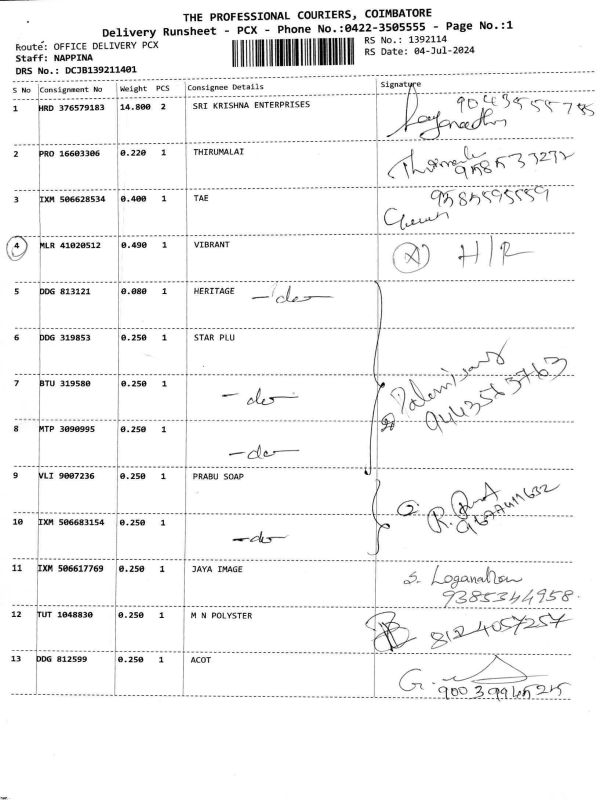 THE PROFESSIONAL COURIERS, COIMBATORE
Delivery Runsheet - PCX - Phone No.:0422-3505555 - Page No.:1
Route: OFFICE DELIVERY PCX
RS No.: 1392114
Staff: NAPPINA
RS Date: 04-Jul-2024
DRS No.: DCJB139211401
S No Consignment No Weight PCS Consignee Details Signature
1 HRD 376579183 14.800 2 SRI KRISHNA ENTERPRISES
2 PRO 16603306 0.220 1 THIRUMALAI
3 IXM 506628534 0.400 1 TAE
4 MLR 41020512 0.490 1 VIBRANT H/R
5 DDG 813121 0.080 1 HERITAGE -do-
6 DDG 319853 0.250 1 STAR PLU
7 BTU 319580 0.250 1 -do-
8 MTP 3090995 0.250 1 -do-
9443563763
9 VLI 9007236 0.250 1 PRABU SOAP
10 IXM 506683154 0.250 1 -do-
11 IXM 506617769 0.250 1 JAYA IMAGE S. Loganathan
9385344958
12 TUT 1048830 0.250 1 M N POLYSTER 8124057257
13 DDG 812599 0.250 1 ACOT